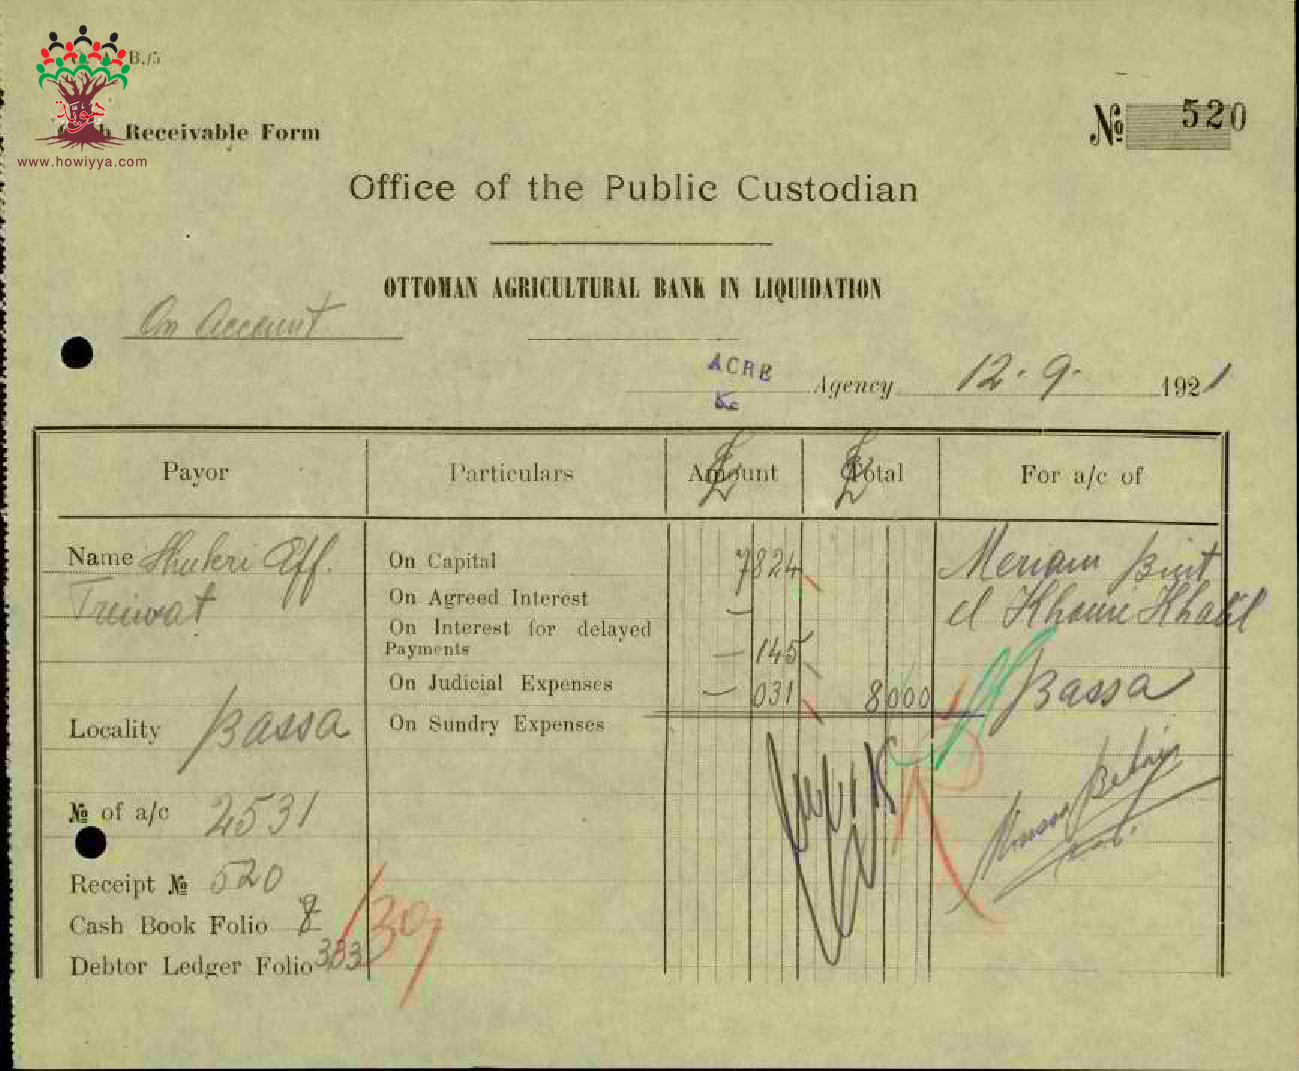 B./5
هوية
www.howiyya.com
Receivable Form
№ 520
Office of the Public Custodian
OTTOMAN AGRICULTURAL BANK IN LIQUIDATION
On Account
ACRE Agency 12-9- 1921
Payor Particulars Amount Total For a/c of
£ £
Name Shukri Eff.
On Capital 7824
Meriam Bint
On Agreed Interest —
el Khoure Khalil
On Interest for delayed
Payments — 145
On Judicial Expenses — 031 8000
Bassa
Locality Bassa
On Sundry Expenses
№ of a/c 2531
Receipt № 520
Cash Book Folio 8
Debtor Ledger Folio 333